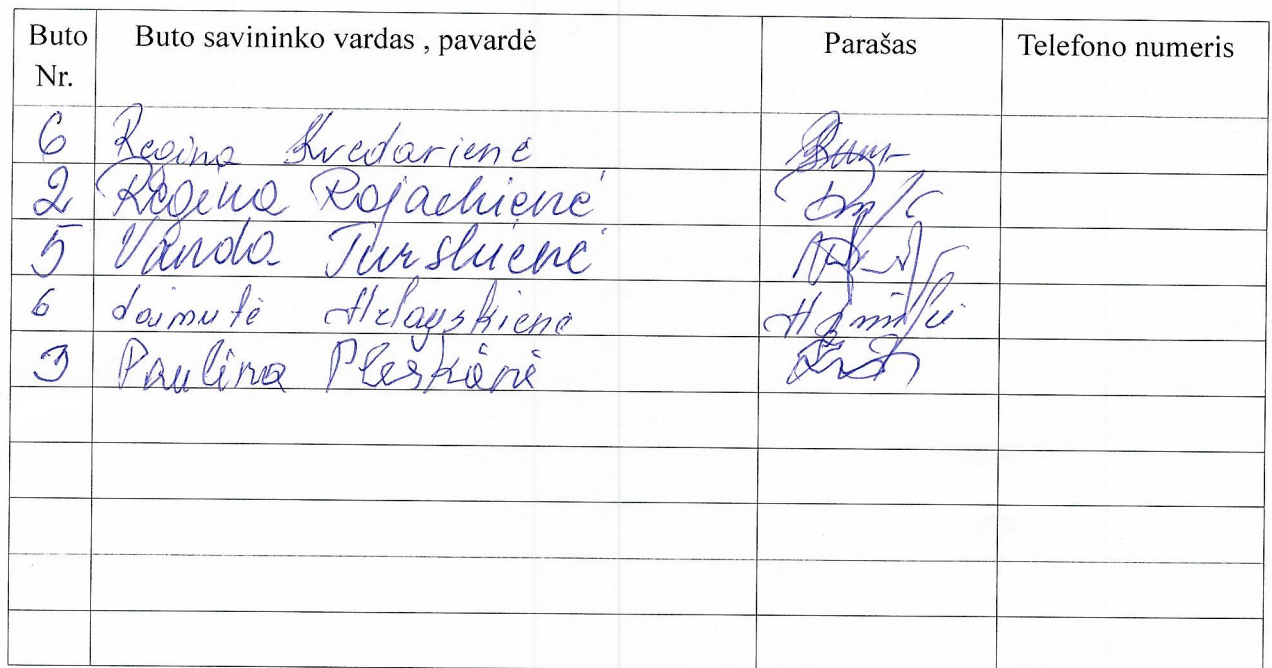 Buto Nr. Buto savininko vardas , pavardė Parašas Telefono numeris
6 Regina Kvedarienė
2 Regina
5 Vanda Turskienė
6 Laimutė
3 Paulina Pleskienė